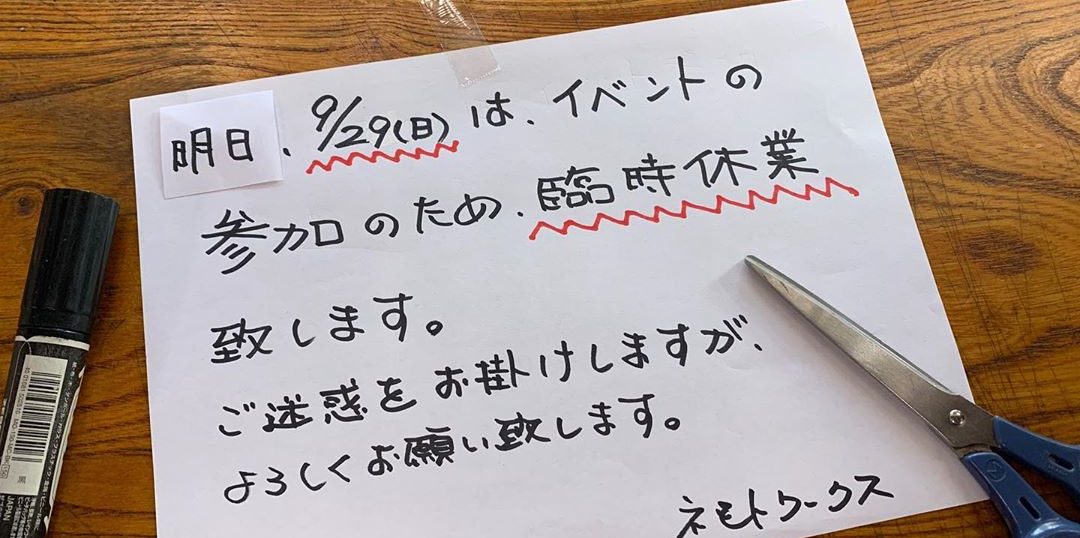 明日、9/29(日)は、イベントの
参加のため、臨時休業
致します。
ご迷惑をお掛けしますが、
よろしくお願い致します。
ネモトワークス
黒
JAPAN